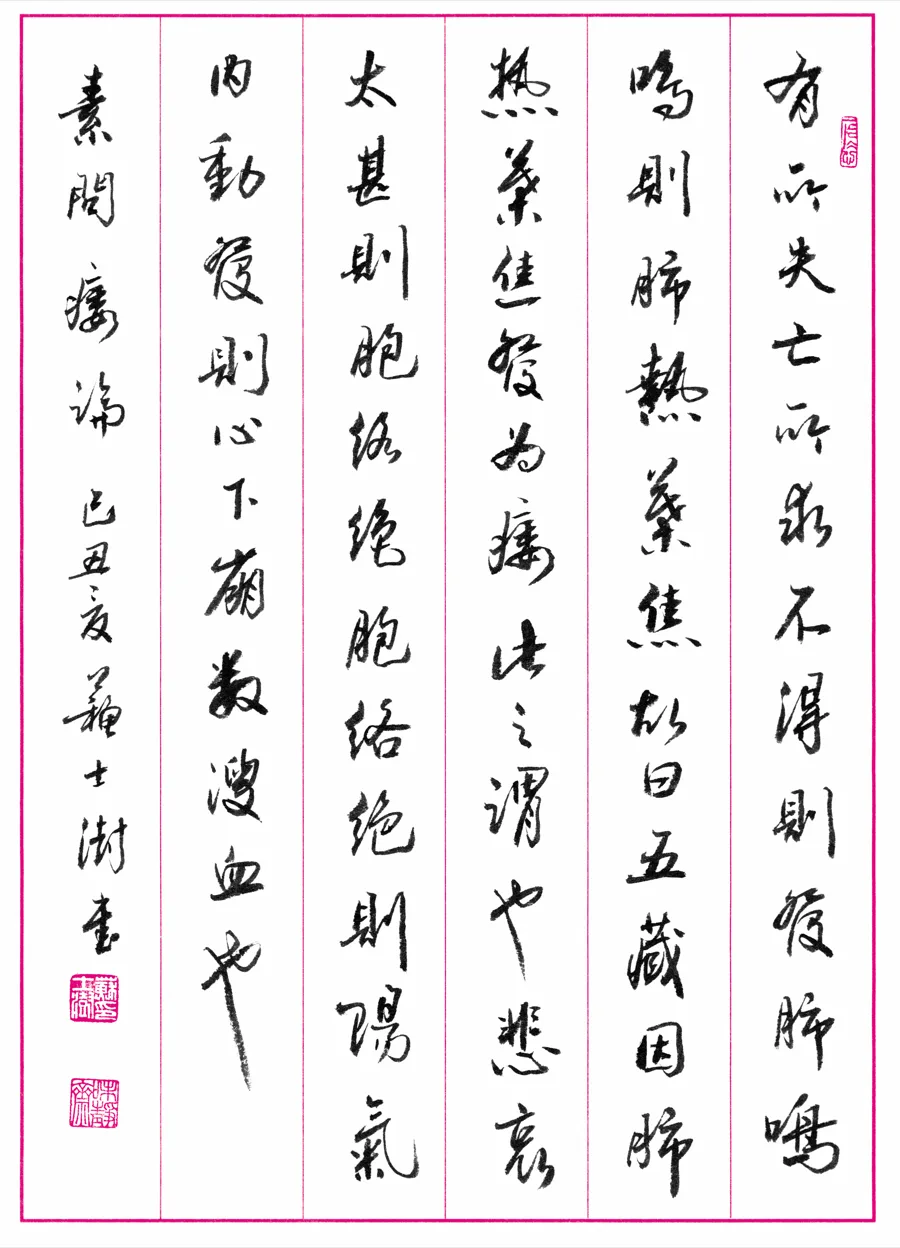 有所失亡所求不得則發肺鳴
鳴則肺熱葉焦故曰五藏因肺
热葉焦發为痿此之謂也悲哀
太甚則胞絡绝胞絡绝則陽氣
内動發則心下崩数溲血也
素問痿論 己丑夏蘇士澍書